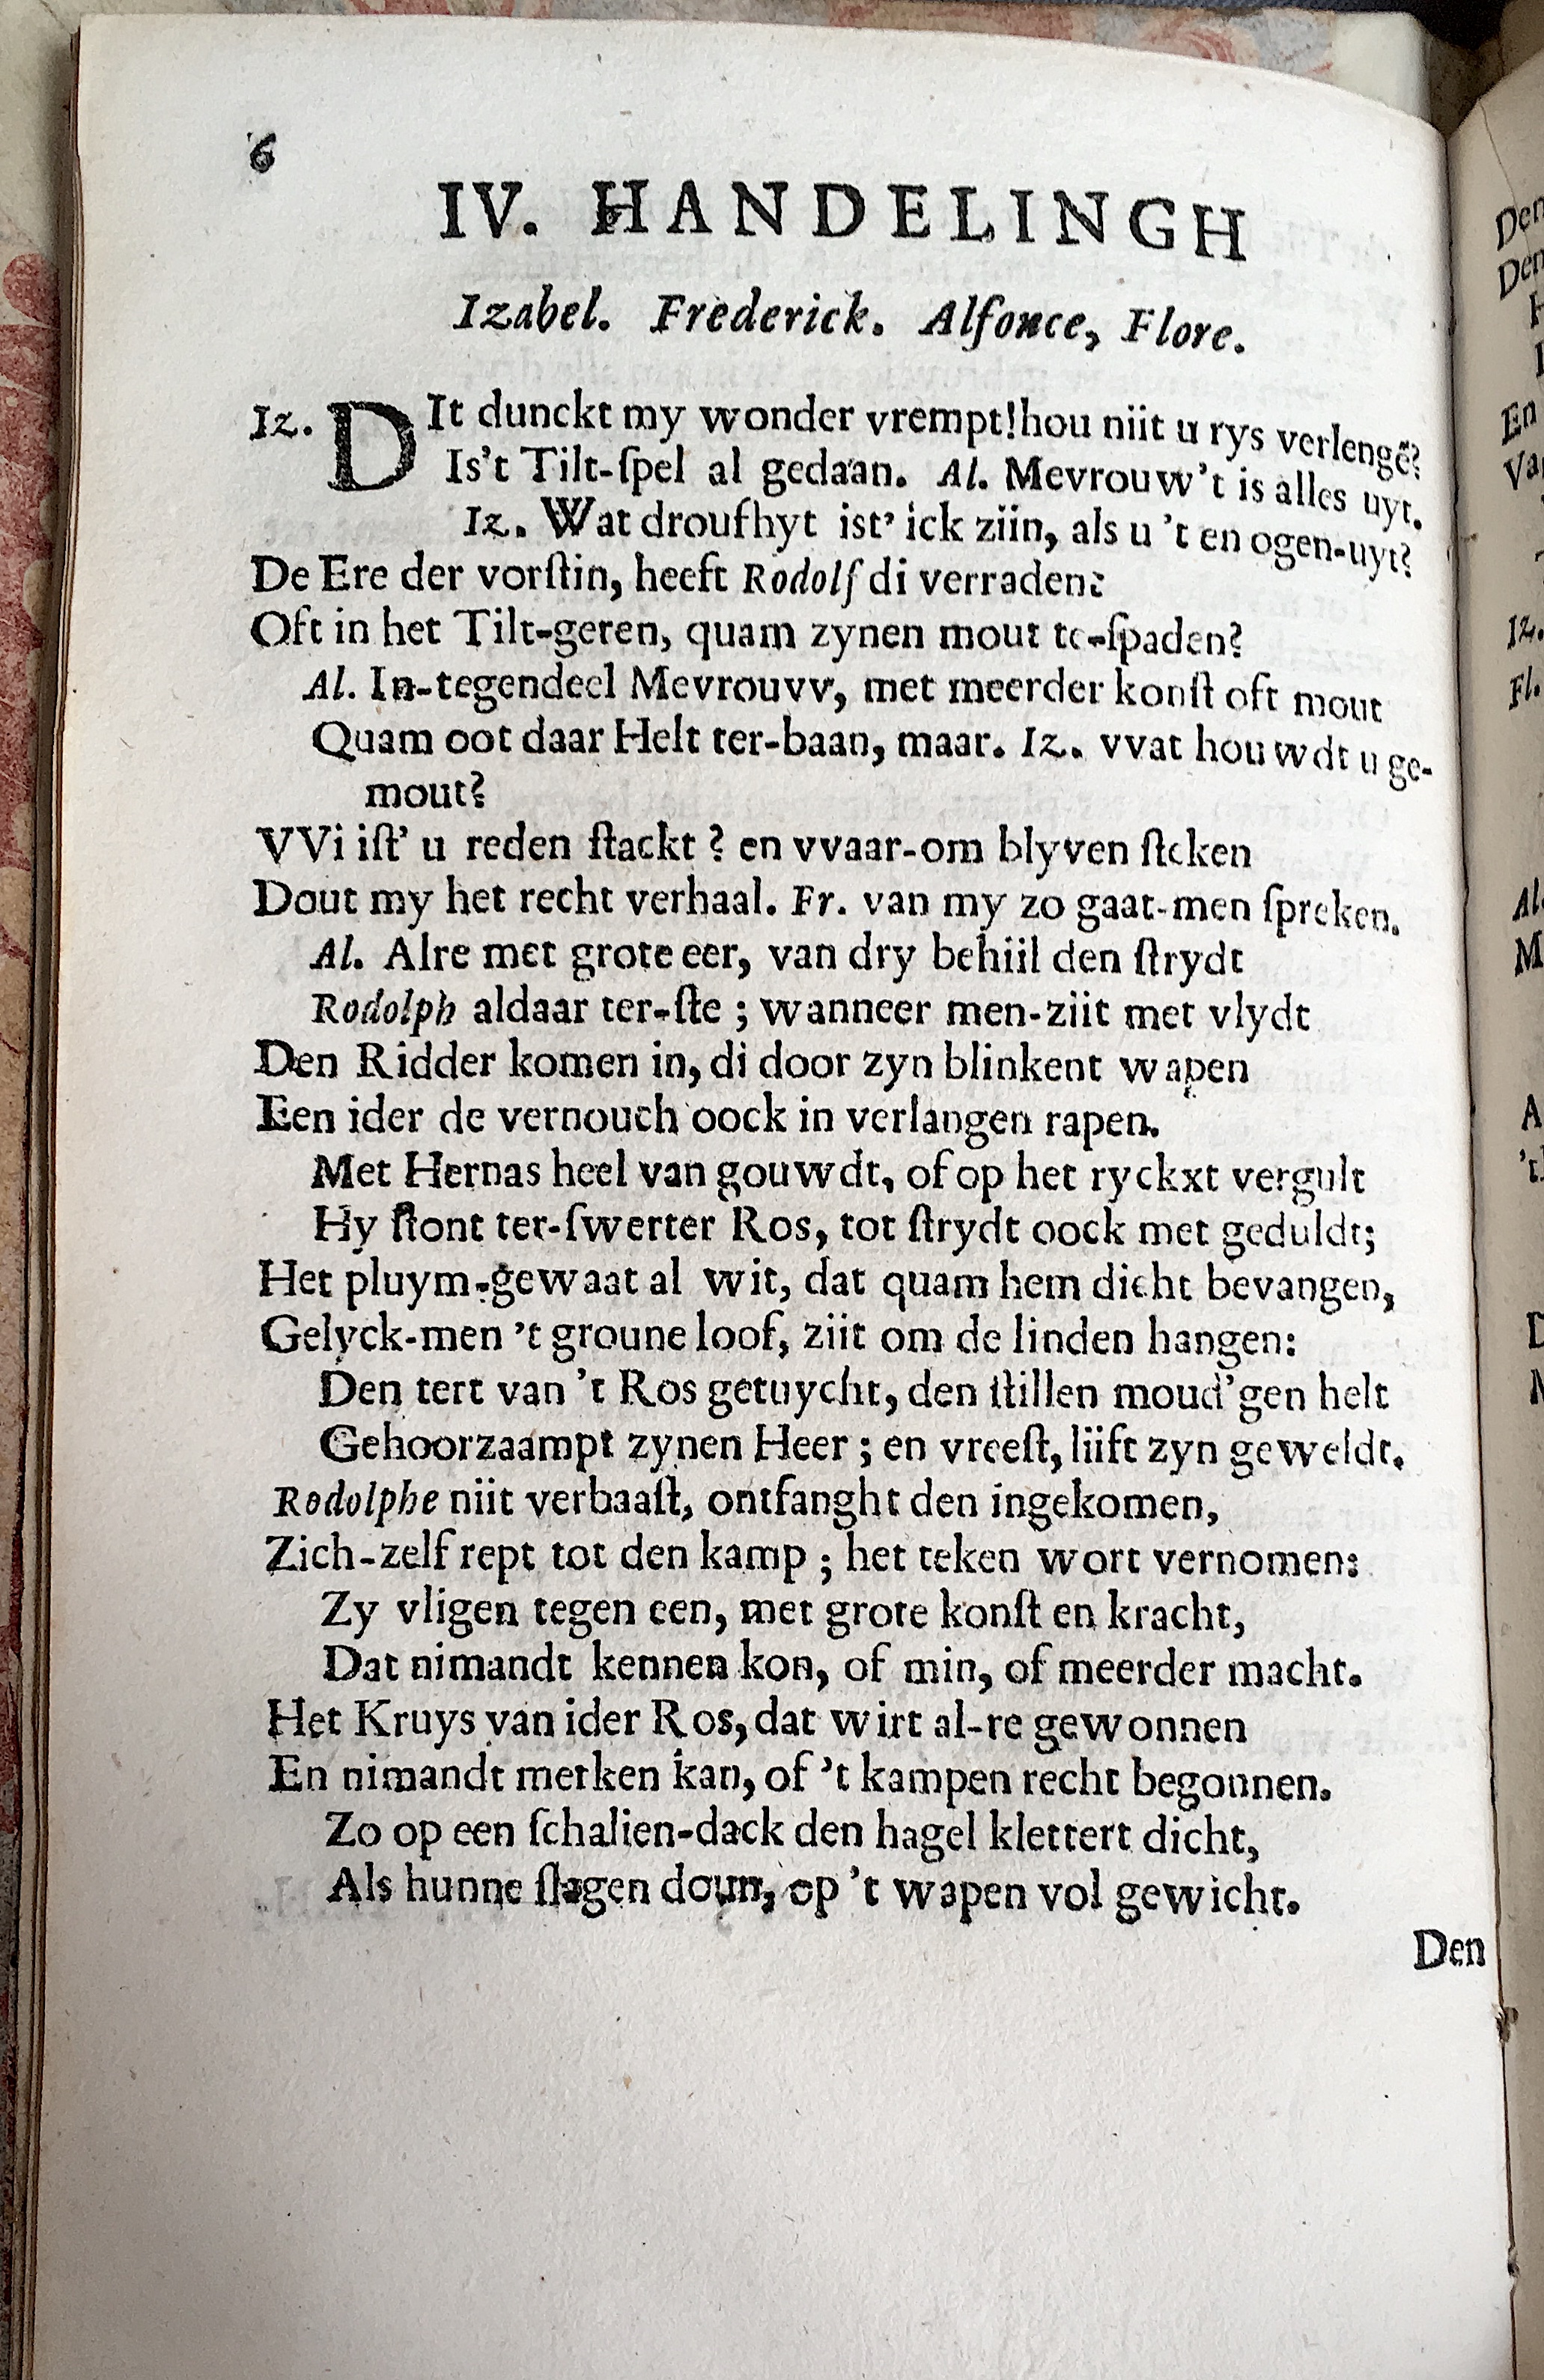 6
IV. HANDELINGH
Izabel. Frederick. Alfonce, Flore.
Iz. DIt dunckt my wonder vrempt! hou niit u rys verlengē?
Is't Tilt-ſpel al gedaan. Al. Mevrouw't is alles uyt.
Iz. Wat droufhyt ist' ick ziin, als u 't en ogen-uyt?
De Ere der vorſtin, heeft Rodolf di verraden?
Oft in het Tilt-geren, quam zynen mout te-ſpaden?
Al. In-tegendeel Mevrouvv, met meerder konſt oft mout
Quam oot daar Helt ter-baan, maar. Iz. vvat houwdt u ge-
mout?
VVi iſt' u reden ſtackt? en vvaar-om blyven ſteken
Dout my het recht verhaal. Fr. van my zo gaat-men ſpreken.
Al. Alre met grote eer, van dry behiil den ſtrydt
Rodolph aldaar ter-ſte; wanneer men-ziit met vlydt
Den Ridder komen in, di door zyn blinkent wapen
Een ider de vernouch oock in verlangen rapen.
Met Hernas heel van gouwdt, of op het ryckxt vergult
Hy ſtont ter-ſwerter Ros, tot ſtrydt oock met geduldt;
Het pluym-gewaat al wit, dat quam hem dicht bevangen,
Gelyck-men 't groune loof, ziit om de linden hangen:
Den tert van 't Ros getuycht, den ſtillen moud'gen helt
Gehoorzaampt zynen Heer; en vreeſt, liift zyn geweldt.
Rodolphe niit verbaaſt, ontfanght den ingekomen,
Zich-zelf rept tot den kamp; het teken wort vernomen:
Zy vligen tegen een, met grote konſt en kracht,
Dat nimandt kennen kon, of min, of meerder macht.
Het Kruys van ider Ros, dat wirt al-re gewonnen
En nimandt merken kan, of 't kampen recht begonnen.
Zo op een ſchalien-dack den hagel klettert dicht,
Als hunne ſlagen doun, op 't wapen vol gewicht.
Den